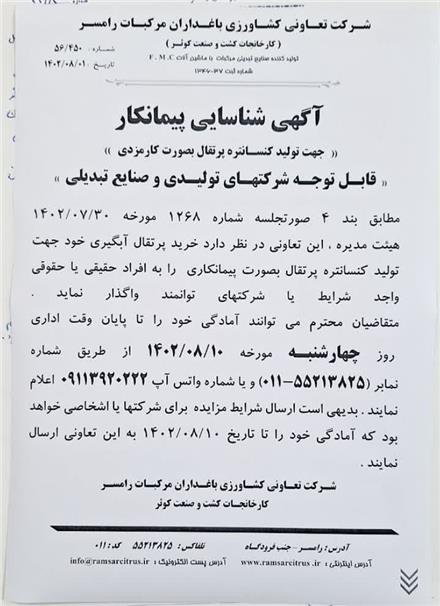 شرکت تعاونی کشاورزی باغداران مرکبات رامسر
( کارخانجات کشت و صنعت کوثر )
تولید کننده صنایع تبدیلی مرکبات با ماشین آلات F . M . C
شماره ثبت ۱۳۴۶-۳۷
شماره : ۵۶/۴۵۰
تاریخ : ۱۴۰۲/۰۸/۰۱
آگهی شناسایی پیمانکار
(( جهت تولید کنسانتره پرتقال بصورت کارمزدی ))
« قابل توجه شرکتهای تولیدی و صنایع تبدیلی »
مطابق بند ۴ صورتجلسه شماره ۱۲۶۸ مورخه ۱۴۰۲/۰۷/۳۰
هیئت مدیره ، این تعاونی در نظر دارد خرید پرتقال آبگیری خود جهت
تولید کنسانتره پرتقال بصورت پیمانکاری را به افراد حقیقی یا حقوقی
واجد شرایط یا شرکتهای توانمند واگذار نماید .
متقاضیان محترم می توانند آمادگی خود را تا پایان وقت اداری
روز چهارشنبه مورخه ۱۴۰۲/۰۸/۱۰ از طریق شماره
نمابر (۵۵۲۱۳۸۲۵-۰۱۱) و یا شماره واتس آپ ۰۹۱۱۳۹۲۰۲۲۲ اعلام
نمایند . بدیهی است ارسال شرایط مزایده برای شرکتها یا اشخاصی خواهد
بود که آمادگی خود را تا تاریخ ۱۴۰۲/۰۸/۱۰ به این تعاونی ارسال
نمایند .
شرکت تعاونی کشاورزی باغداران مرکبات رامسر
کارخانجات کشت و صنعت کوثر
آدرس : رامسر – جنب فرودگاه تلفاکس : ۵۵۲۱۳۸۲۵ کد : ۰۱۱
آدرس اینترنتی : www.ramsarcitrus.ir آدرس پست الکترونیک : info@ramsarcitrus.ir